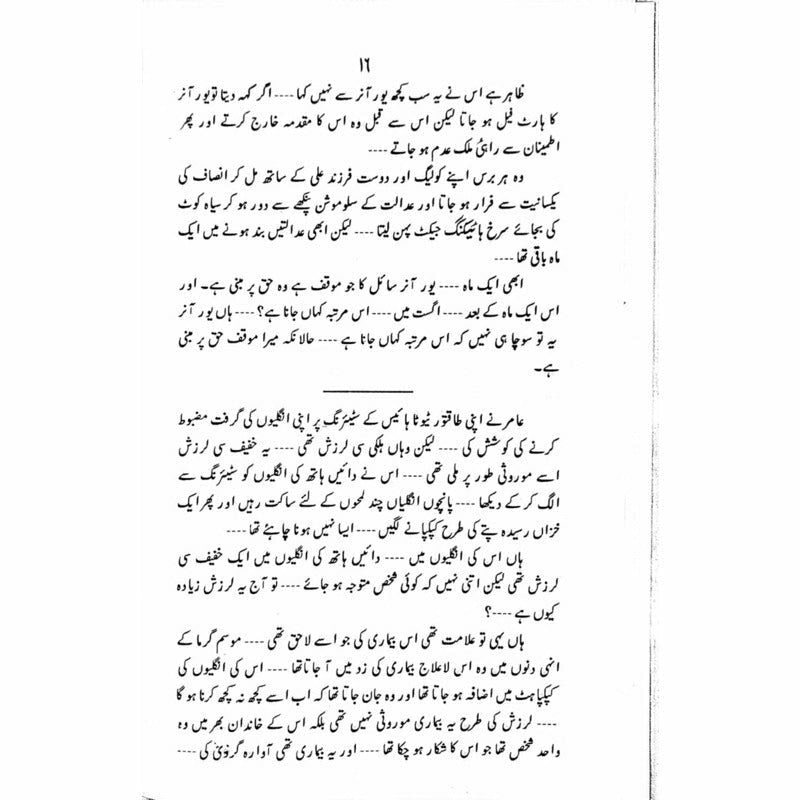 ۱۶
ظاہر ہے اس نے یہ سب کچھ یور آنر سے نہیں کہا ---- اگر کہہ دیتا تو یور آنر
کا ہارٹ فیل ہو جاتا لیکن اس سے قبل وہ اس کا مقدمہ خارج کرتے اور پھر
اطمینان سے راہیٔ ملک عدم ہو جاتے ----
وہ ہر برس اپنے کولیگ اور دوست فرزند علی کے ساتھ مل کر انصاف کی
یکسانیت سے فرار ہو جاتا اور عدالت کے سلوموشن پنکھے سے دور ہو کر سیاہ کوٹ
کی بجائے سرخ ہائیکنگ جیکٹ پہن لیتا ---- لیکن ابھی عدالتیں بند ہونے میں ایک
ماہ باقی تھا ----
ابھی ایک ماہ ---- یور آنر سائل کا جو موقف ہے وہ حق پر مبنی ہے۔ اور
اس ایک ماہ کے بعد ---- اگست میں ---- اس مرتبہ کہاں جانا ہے؟ ---- ہاں یور آنر
یہ تو سوچا ہی نہیں کہ اس مرتبہ کہاں جانا ہے ---- حالانکہ میرا موقف حق پر مبنی
ہے۔
عامر نے اپنی طاقتور ٹیوٹا ہائیس کے سٹیئرنگ پر اپنی انگلیوں کی گرفت مضبوط
کرنے کی کوشش کی ---- لیکن وہاں ہلکی سی لرزش تھی ---- یہ خفیف سی لرزش
اسے موروثی طور پر ملی تھی ---- اس نے دائیں ہاتھ کی انگلیوں کو سٹیئرنگ سے
الگ کر کے دیکھا ---- پانچوں انگلیاں چند لمحوں کے لئے ساکت رہیں اور پھر ایک
خزاں رسیدہ پتے کی طرح کپکپانے لگیں ---- ایسا نہیں ہونا چاہئے تھا ----
ہاں اس کی انگلیوں میں ---- دائیں ہاتھ کی انگلیوں میں ایک خفیف سی
لرزش تھی لیکن اتنی نہیں کہ کوئی شخص متوجہ ہو جائے ---- تو آج یہ لرزش زیادہ
کیوں ہے ----؟
ہاں یہی تو علامت تھی اس بیماری کی جو اسے لاحق تھی ---- موسم گرما کے
انہی دنوں میں وہ اس لاعلاج بیماری کی زد میں آ جاتا تھا ---- اس کی انگلیوں کی
کپکپاہٹ میں اضافہ ہو جاتا تھا اور وہ جان جاتا تھا کہ اب اسے کچھ نہ کچھ کرنا ہو گا
---- لرزش کی طرح یہ بیماری موروثی نہیں تھی بلکہ اس کے خاندان بھر میں وہ
واحد شخص تھا جو اس کا شکار ہو چکا تھا ---- اور یہ بیماری تھی آوارہ گردی کی ----